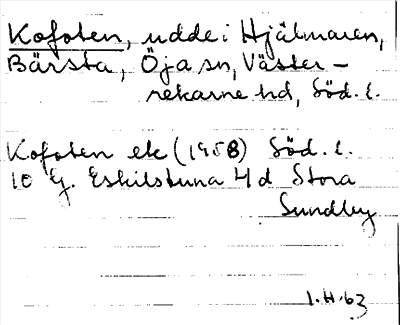 Kofoten, udde i Hjälmaren,
Bärsta, Öja sn, Väster-
rekarne hd, Söd. l.
Kofoten ek (1958) Söd. l.
10 G. Eskilstuna 4 d Stora
Sundby
1.H.63